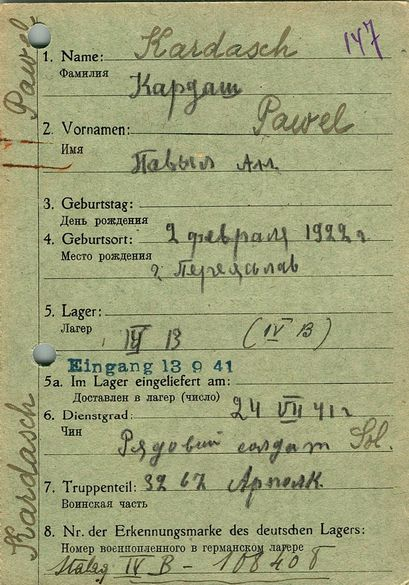 Pawel
1. Name: Kardasch 147
Фамилия
Кардаш
2. Vornamen: Pawel
Имя
Павыл
3. Geburtstag:
День рождения
4. Geburtsort: 2 февраля 1922 г
Место рождения
г. Переяслав
5. Lager:
Лагерь
IV B (IV B)
Eingang 13 9 41
5a. Im Lager eingeliefert am:
Доставлен в лагер (число)
6. Dienstgrad: 24 VII 41 г
Чин
Рядовий солдат Sol.
7. Truppenteil: 32 67 Арполк
Воинская часть
8. Nr. der Erkennungsmarke des deutschen Lagers:
Номер военнопленного в германском лагере
Stalag IV B –
Kardasch